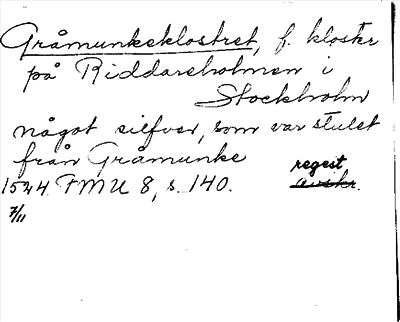 Gråmunkeklostret, f. kloster
på Riddareholmen i
Stockholm
något silfver, som var stulet
från Gråmunke
regest
1524 FMU 8, s. 140. avskr.
7/11